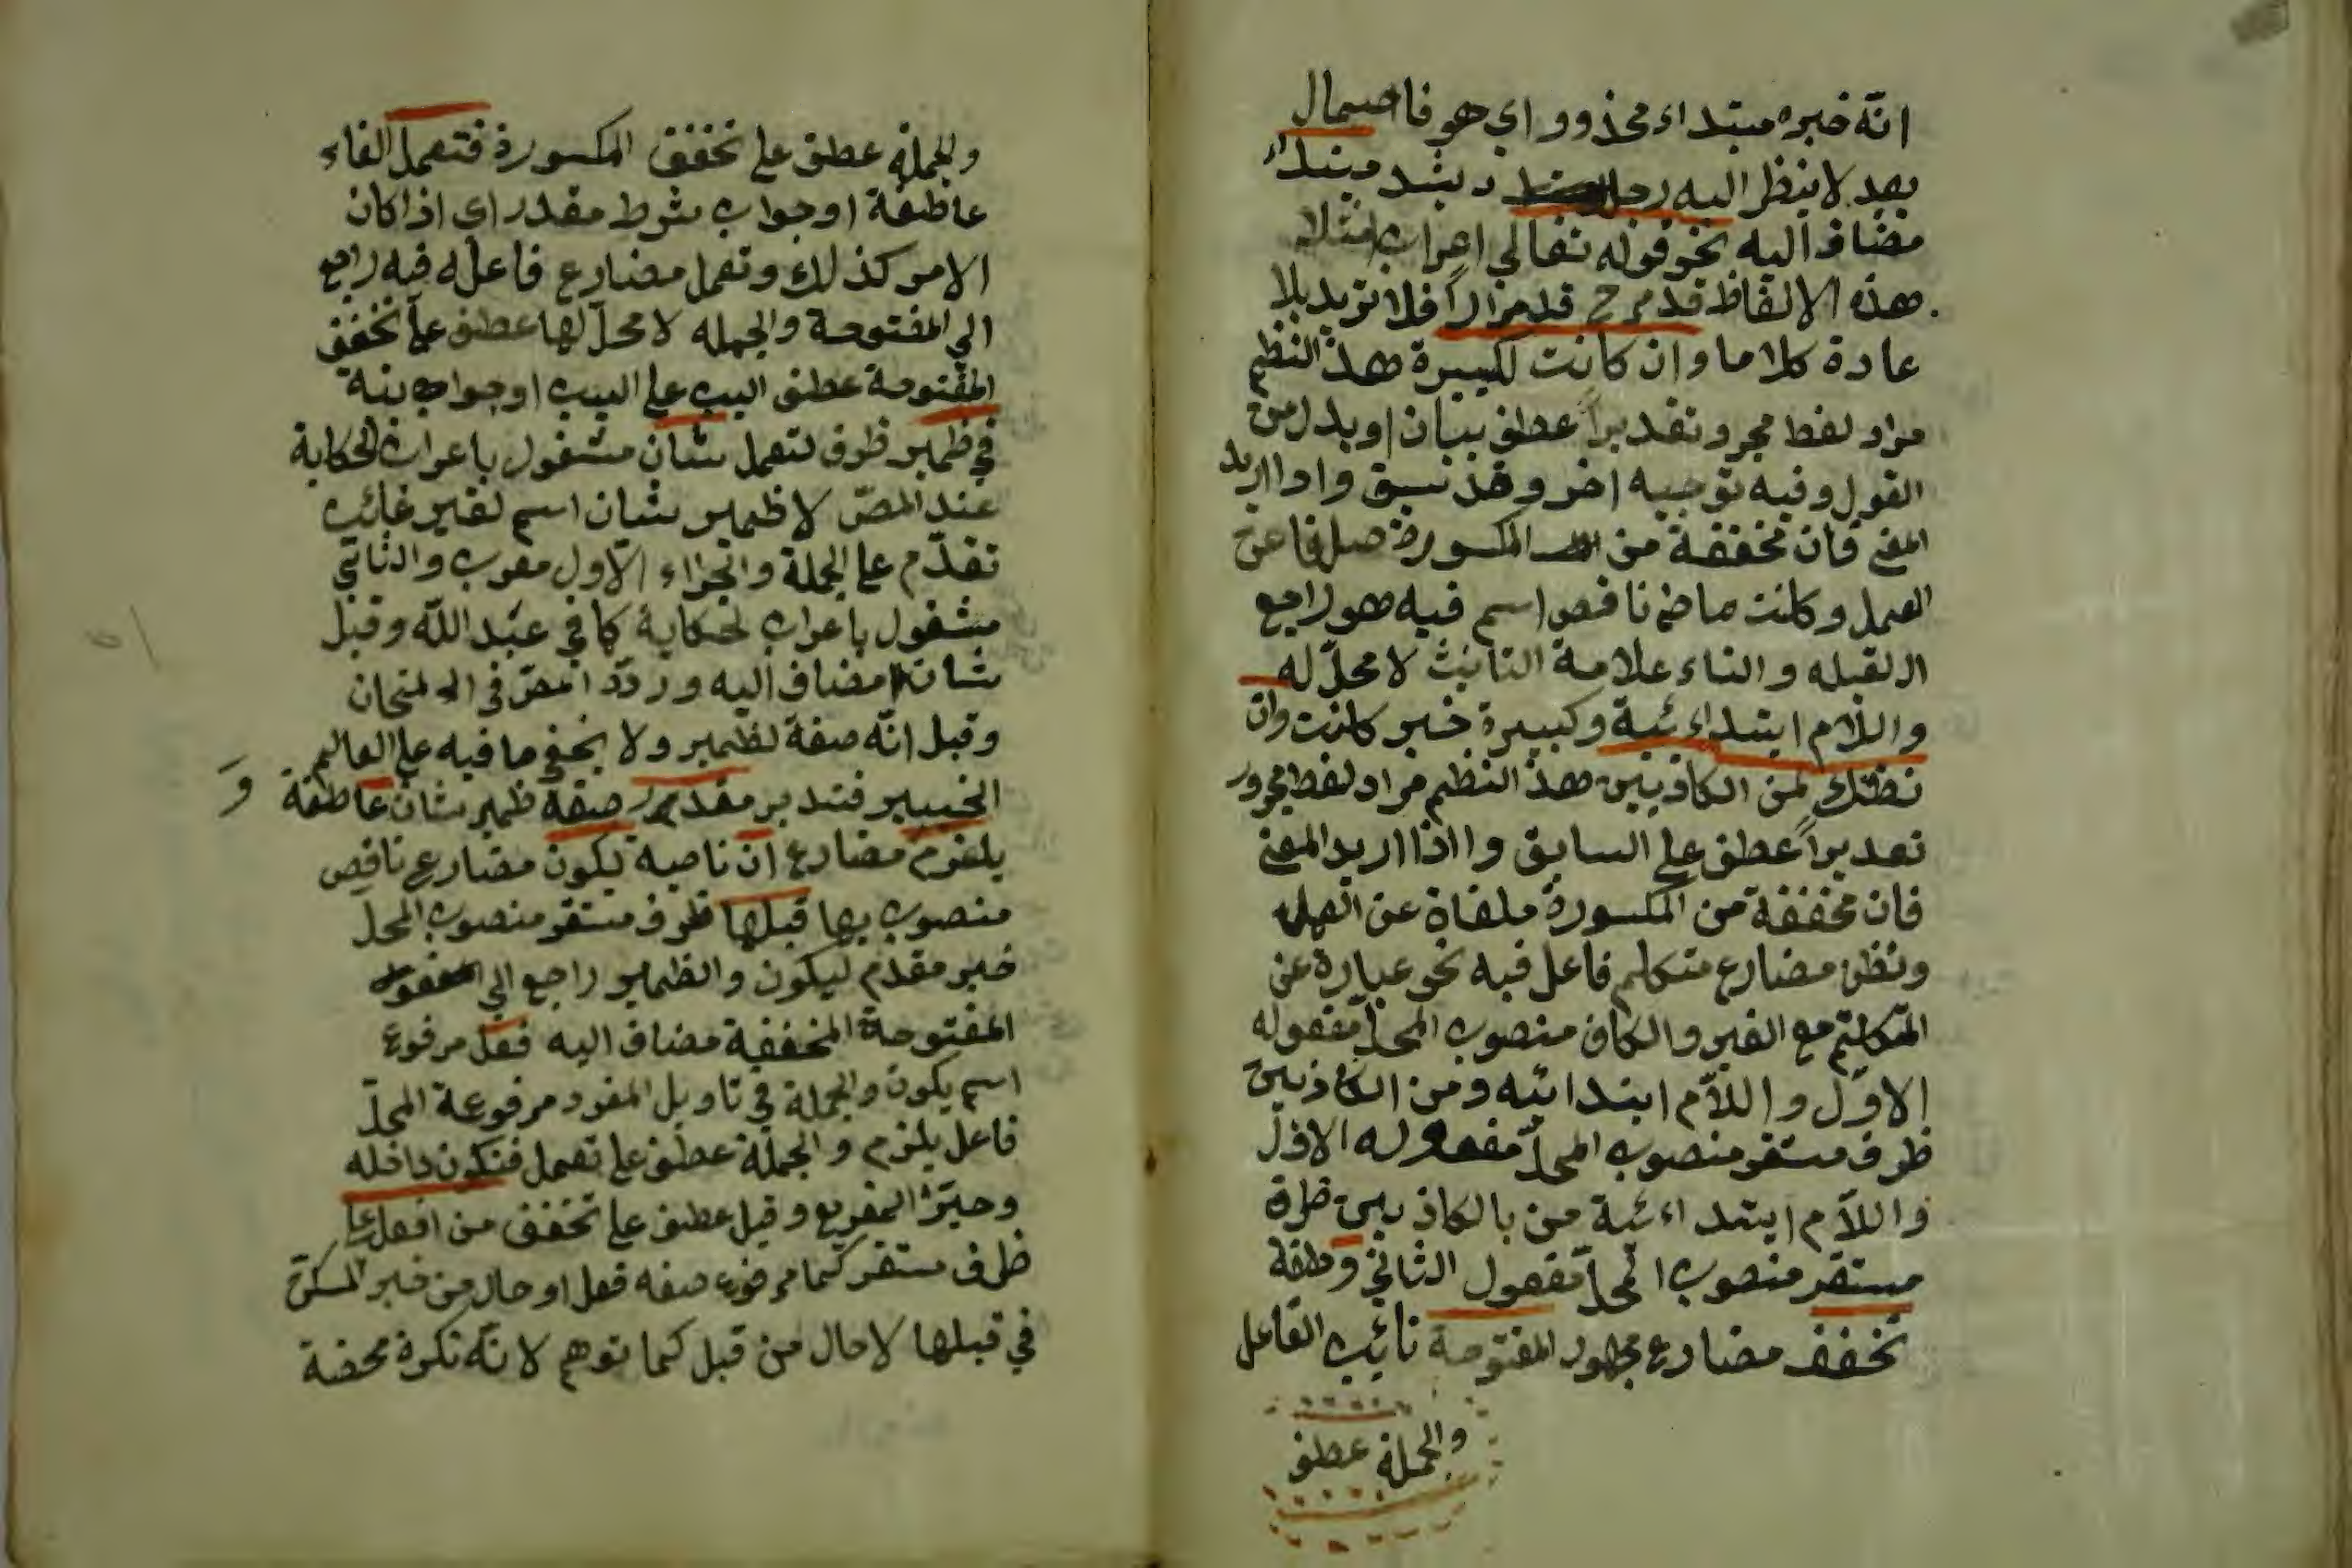 انّه خبره مبتداء محذوو اي هو فاحمال
بعد لا ينظر اليه رجل د بشد مبتداء
مضاف اليه نحو قوله تعالي اعراب امثلا
هذه الالفاظ قد مرح قد مراراً فلا تريد بلا
عادة كلاما وان كانت لكبيرة هذ النظم
مراد لفظ مجر وتقديراً عطف بيان او بدل من
القول وفيه توجيه اخر وقد نسبق واذا اريد
المعني فان مخففة من المكسورة صلفا عن
العمل وكانت ماض ناقص اسم فيه هو راجع
الالقبله والتاء علامة التانيث لا محلّ له
واللّام ابتداءئية وكبيرة خبر كانت وان
نظنّك لمن الكاذبين هذ النظم مراد لفظ مجرور
تعديراً عطف علي السابق وا اذا اريد المعني
فان مخففة من المكسورة ملغاة عن العمل
ونظن مضارع متكلم فاعل فيه نحو عبارة عن
المتكلّم مع الغير والكاف منصوب المحلّ مفعوله
الاوّل واللاّم ابتدائيه ومن الكاذبين
ظرف مستقر منصوب المحلّ مفعوله الاوّل
واللاّم ابتداءئية من بالكاذبين ظرف
مستقر منصوب المحلّ مفعول الثاني
تخفف مضارع مجهول المفتوحة نائب الفاعل
والجملة عطف
والجملة عطف علي تخفف المكسورة فتعمل الفاء
عاطفة او جواب شرط مقدر اي اذا كان
الامر كذلك وتعمل مضارع فاعله فيه راجع
الي المفتوحة والجمله لا محلّ لها عطف علي تخفف
المفتوحة عطف البيت علي البيت او جواب بنة
في ظمير ظرف لتعمل شان مشغول باعراب الحكاية
عند المصّ لا ظمير شان اسم لغير غائب
تقدّم علي الجملة والجزاء الاول معرب والثاني
مشغول باعراب لحكاية كما في عبد اللّه وقيل
شان مضاف اليه وردّه المصّ في الامتحان
وقيل انّه صفة لظمير ولا يخفي ما فيه علي العالم
الخبير فتدبر مقدر صفة ظمير شان عاطفة
و
يلزم مضارع ان ناصبة يكون مضارع ناقص
منصوب بها قبلها ظرف مستقر منصوب المحلّ
خبر مقدّم ليكون والظمير راجع الي
المفتوحة المخففة مضاف اليه فعل مرفوع
اسم يكون والجملة في تاويل المفرد مرفوعة المحلّ
فاعل يلزم والجملة عطف علي تعمل فتكون داخله
وحيّز التفريع وقيل عطف علي تخفف من افعال
ظرف مستقر كما مرفوع صفه فعل او حال من خبر المسكنّ
في قبلها لا حال من قبل كما توهم لانّه نكرة محضة